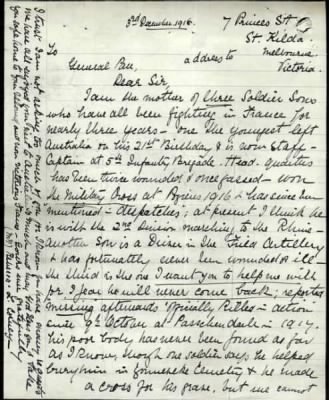 3rd December 1916.
7 Princes St
St. Kilda
Melbourne
Victoria.
To
General Bean,
address to
Dear Sir,
I am the mother of three Soldier Sons
who have all been fighting in France for
nearly three years - one the youngest left
Australia on his 21st Birthday & is now Staff-
Captain at 5th Infantry Brigade. Head. Quarters
has been twice wounded & once gassed - won
the Military Cross at Pozieres 1916 & has since been
mentioned in dispatches; at present I think he
is with the 2nd Division marching to the Rhine -
Another Son is a Driver in the Field Artillery
& has fortunately never been wounded or ill
the third is the one I want you to help me with
for I fear he will never come back; reported
missing afterwards officially Killed in action
since 9th October at Passchendaele in 1917.
his poor body has never been found as far
as I know, though one soldier says he helped
bury him in Zonnebeke Cemetery & he made
a cross for his grave, but we cannot
I trust I am not asking too much of you for I know you have many requests